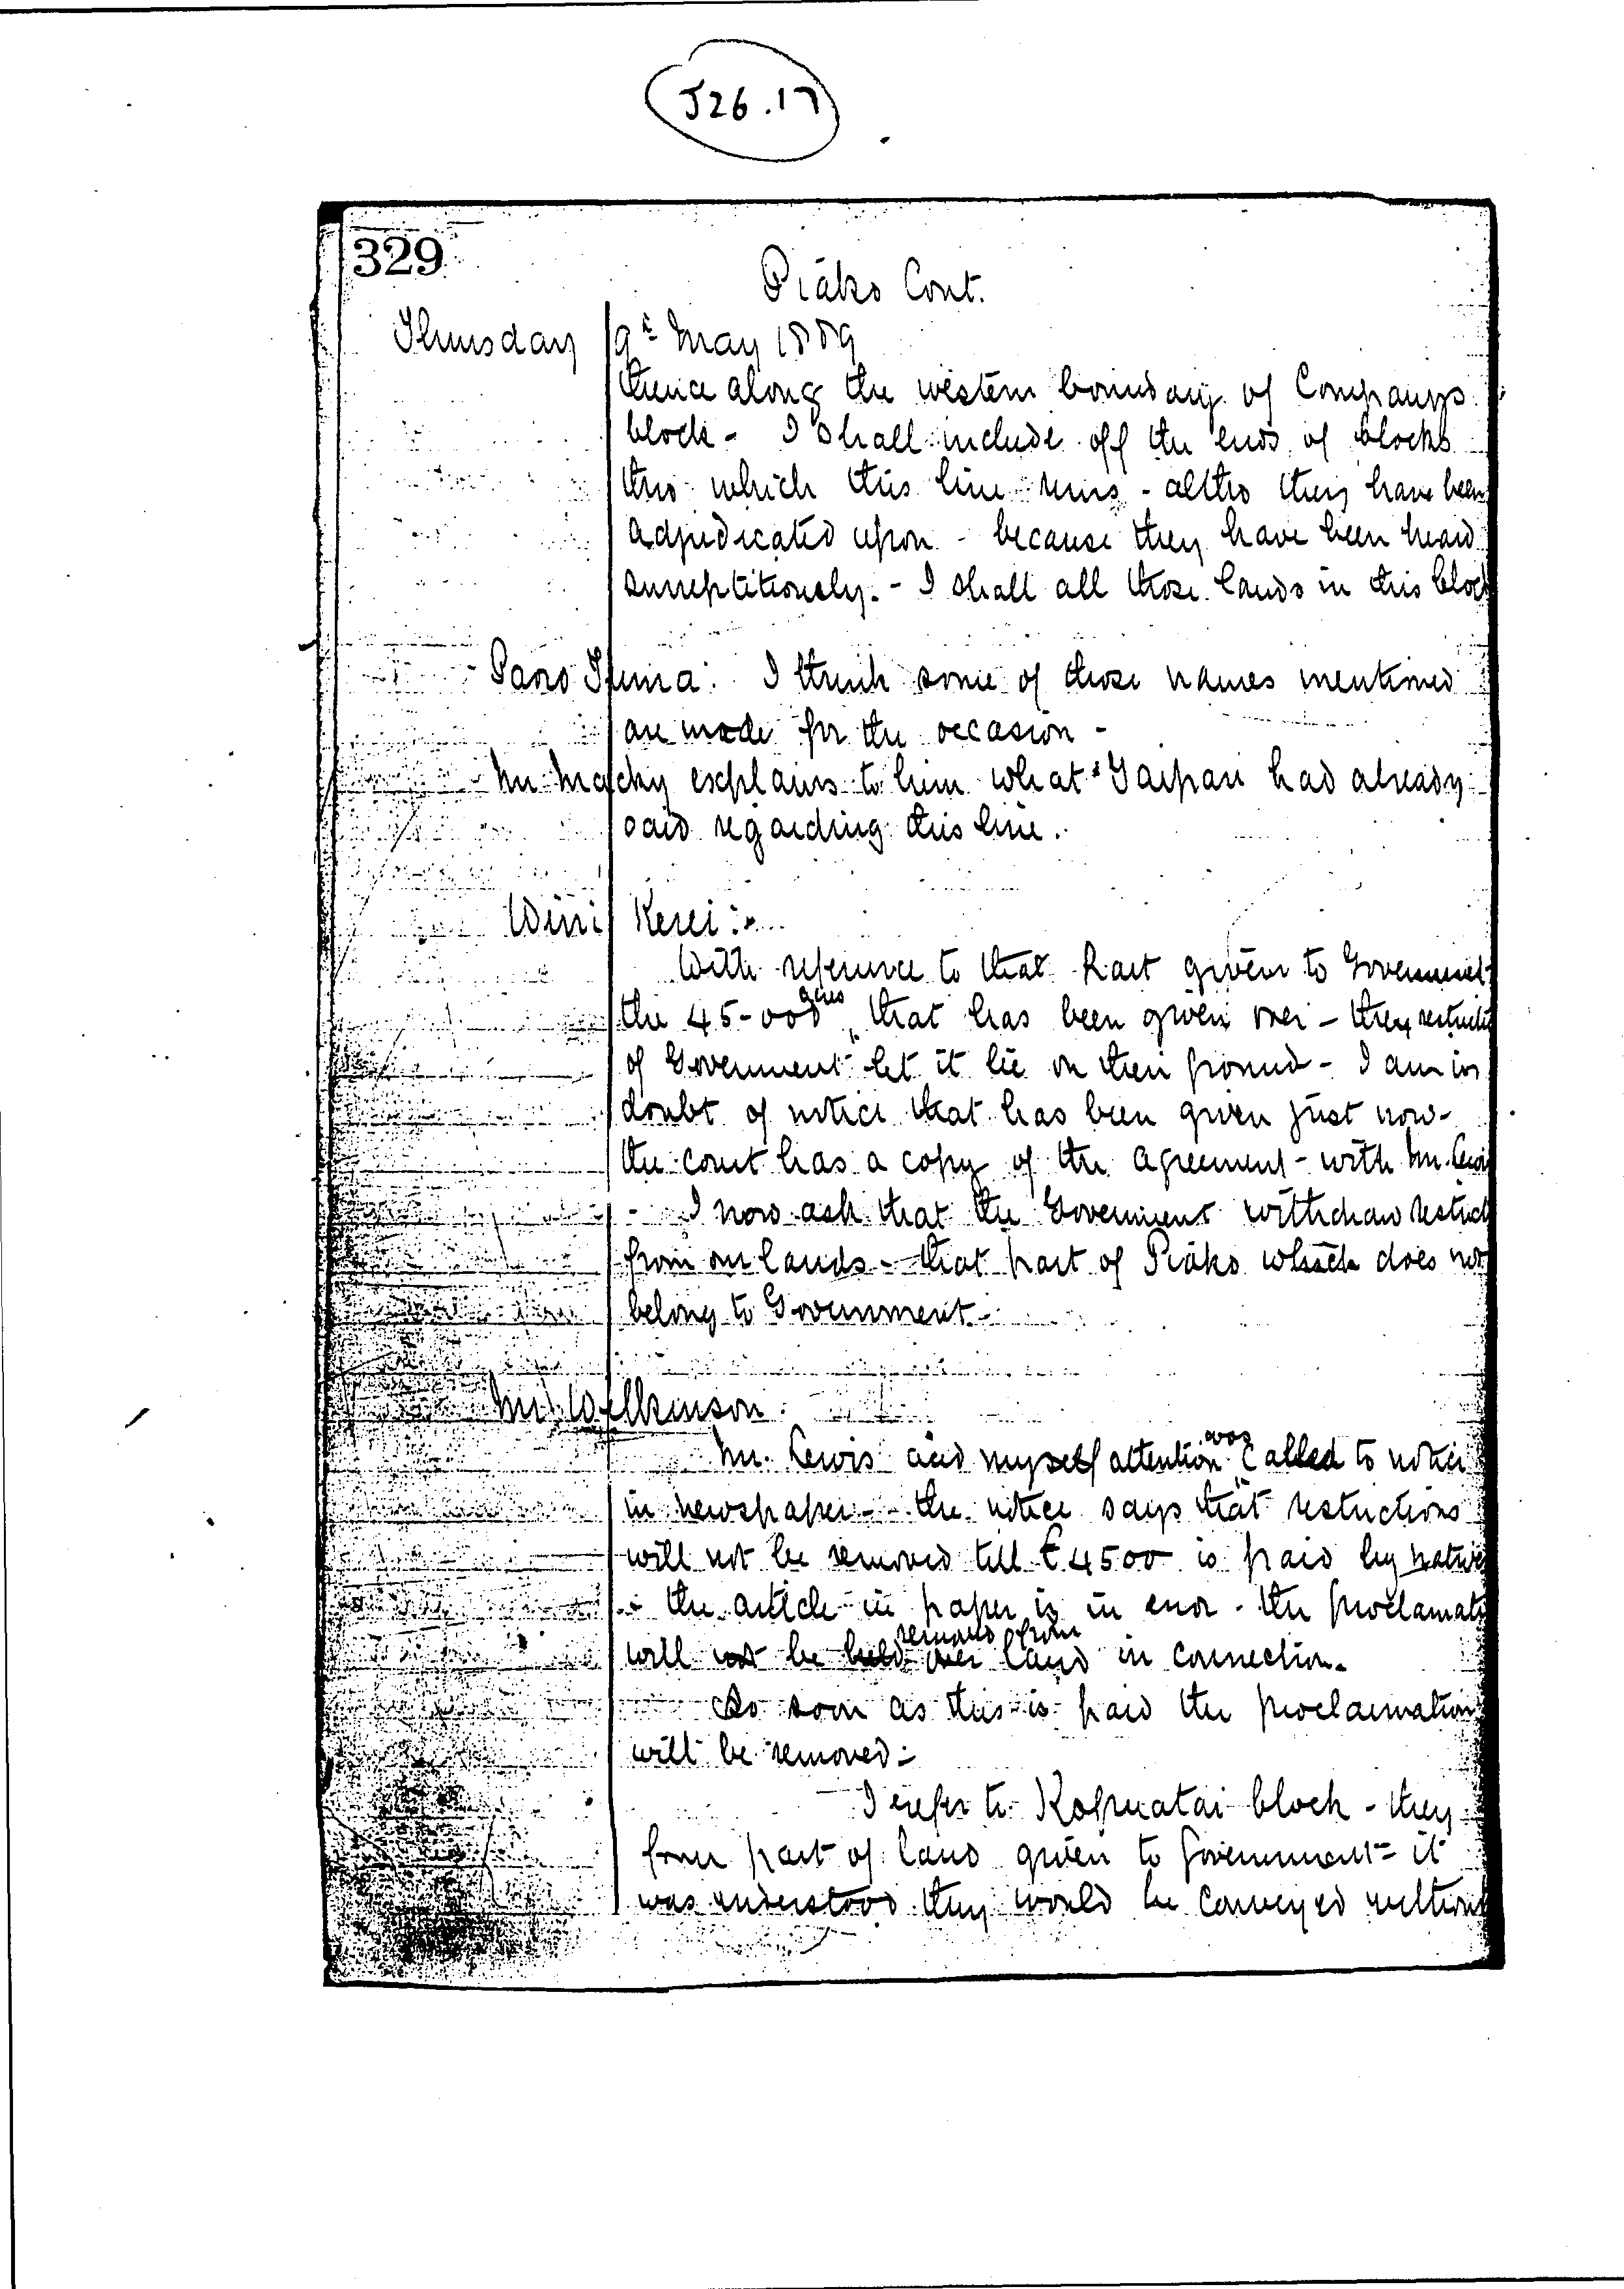 J26.17
329
Piāko Cont.
Thursday 9th May 1889
thence along the western boundary of Companys
block - I shall include off the ends of blocks
thro which this line runs - altho they have been
adjudicated upon - because they have been heard
surreptitiously. - I shall all those lands in this block
I think some of those names mentioned
are made for the occasion -
Mr Macky explains to him what Taipari had already
said regarding this line.
Wini Kerei :-
With reference to that part given to Government
the 45-000 acres that has been given over - they
of Government let it lie on their ground - I am in
doubt of notice that has been given just now -
the court has a copy of the agreement - with Mr. Lewis
- I now ask that the Government withdraw restrict
from our lands - that part of Piāko which does not
belong to Government -
Mr Wilkinson
Mr. Lewis and myself attention was called to notice
in newspaper - the notice says that restrictions
will not be removed till £4500 is paid by natives
- the article in paper is in error - the proclamati
will not be held over removed from land in connection -
As soon as this is paid the proclamation
will be removed -
I refer to Kopuatai block - they
form part of land given to Government - it
was understood they would be conveyed without